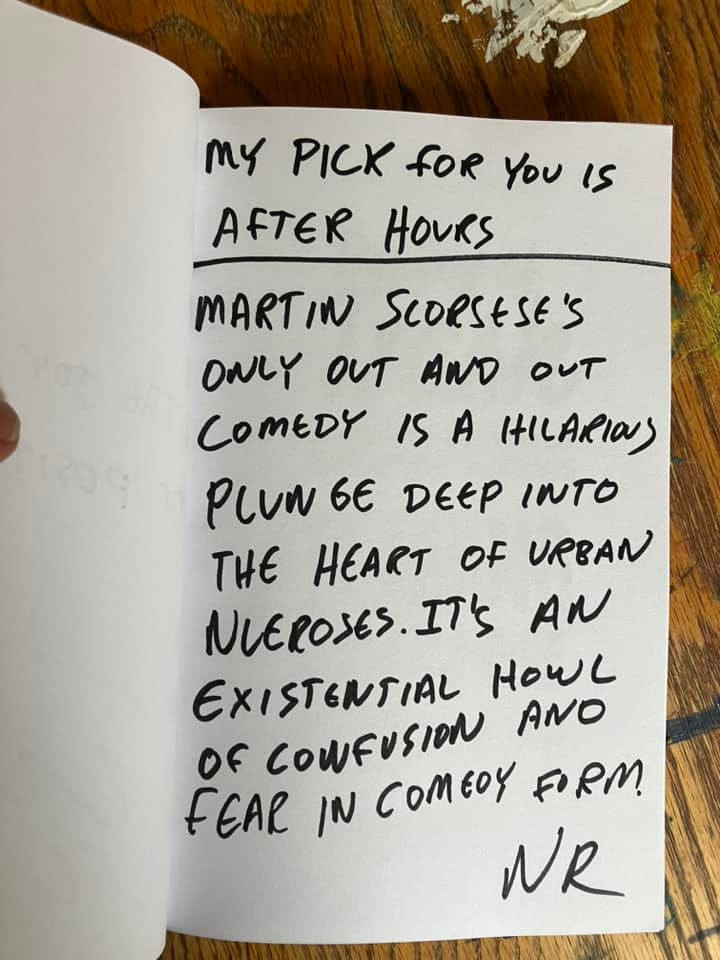 MY PICK FOR YOU IS
AFTER HOURS
MARTIN SCORSESE'S
ONLY OUT AND OUT
COMEDY IS A HILARIOUS
PLUNGE DEEP INTO
THE HEART OF URBAN
NUEROSES. IT'S AN
EXISTENTIAL HOWL
OF CONFUSION AND
FEAR IN COMEDY FORM.
NR